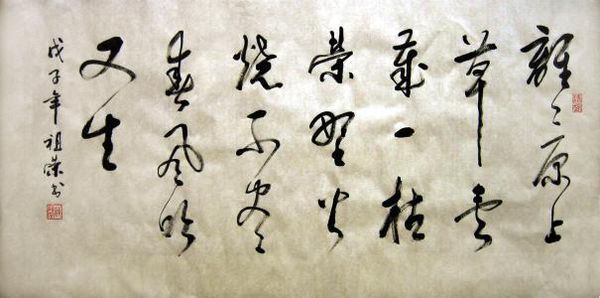 離〻原上
草壹
歲一枯
榮野火
燒不盡
春風吹
又生
戊子年祖榮书